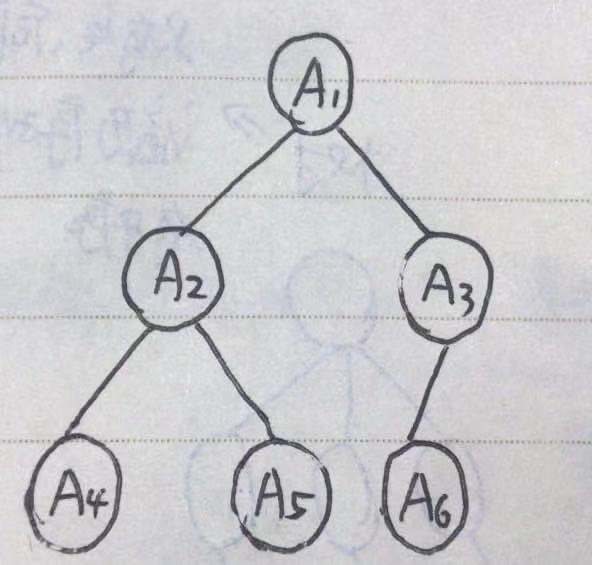 A1
A2 A3
A4 A5 A6